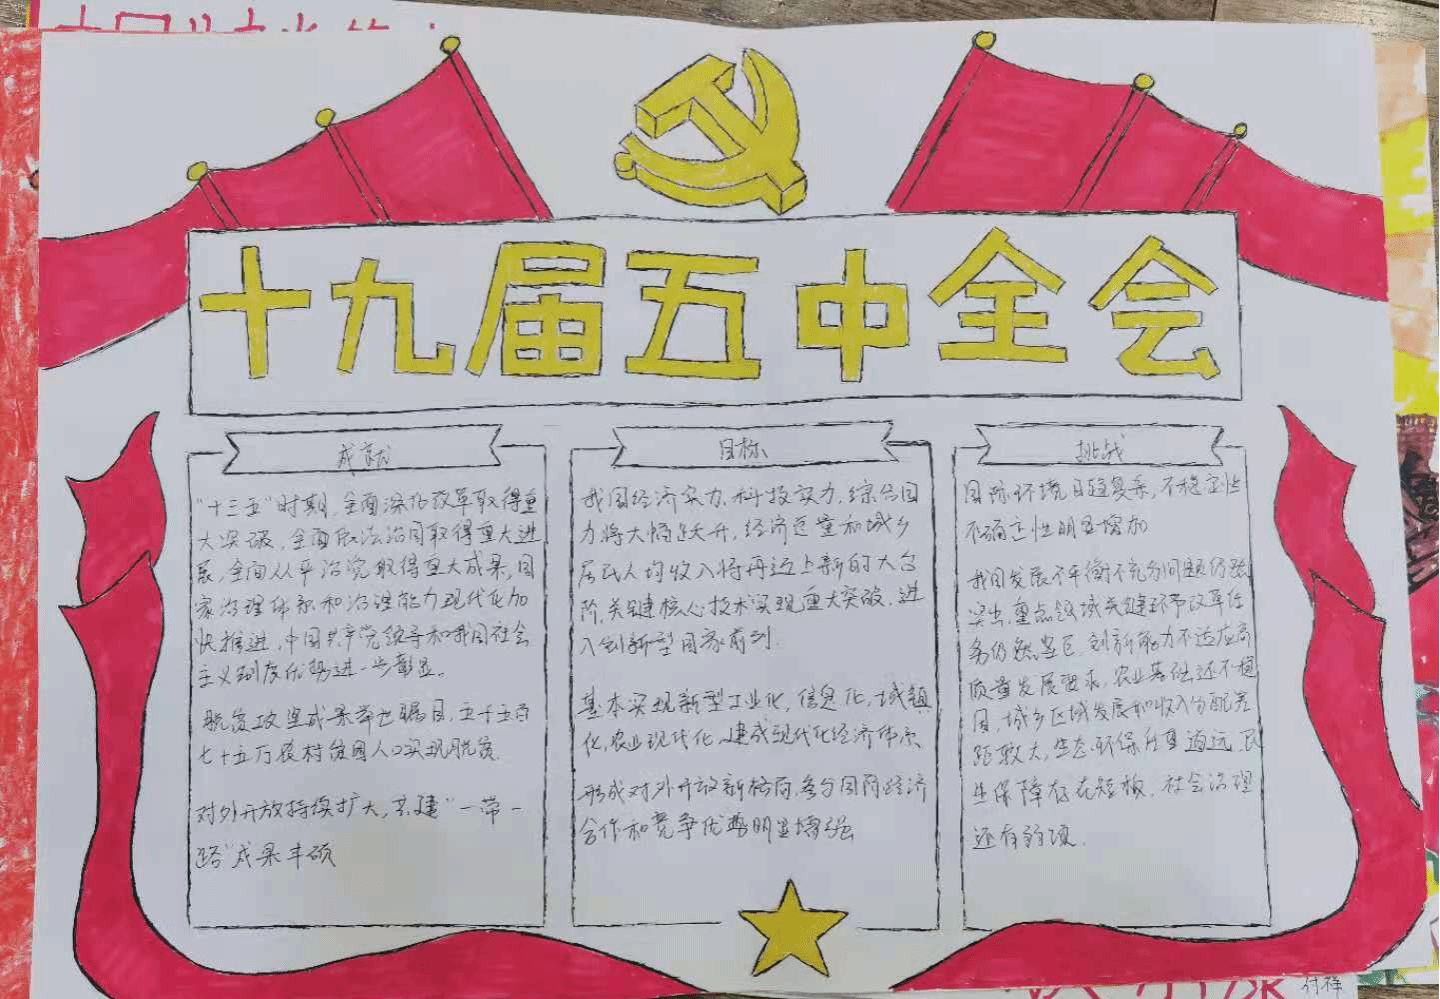 十九届五中全会
成就
"十三五"时期,全面深化改革取得重
大突破,全面依法治国取得重大进
展,全面从严治党取得重大成果,国
家治理体系和治理能力现代化加
快推进,中国共产党领导和我国社会
主义制度优势进一步彰显。
脱贫攻坚成果举世瞩目,五千五百
七十五万农村贫困人口实现脱贫
对外开放持续扩大,共建"一带一
路"成果丰硕
目标
我国经济实力,科技实力,综合国
力将大幅跃升,经济总量和城乡
居民人均收入将再迈上新的大台
阶,关键核心技术实现重大突破,进
入创新型国家前列.
基本实现新型工业化,信息化,城镇
化,农业现代化,建成现代化经济体系
形成对外开放新格局,参与国际经济
合作和竞争优势明显增强
挑战
国际环境日趋复杂,不稳定性
不确定性明显增加
我国发展不平衡不充分问题仍然
突出,重点领域关键环节改革任
务仍然艰巨,创新能力不适应高
质量发展要求,农业基础还不稳
固,城乡区域发展和收入分配差
距较大,生态环保任重道远,民
生保障存在短板,社会治理
还有弱项.
付祥